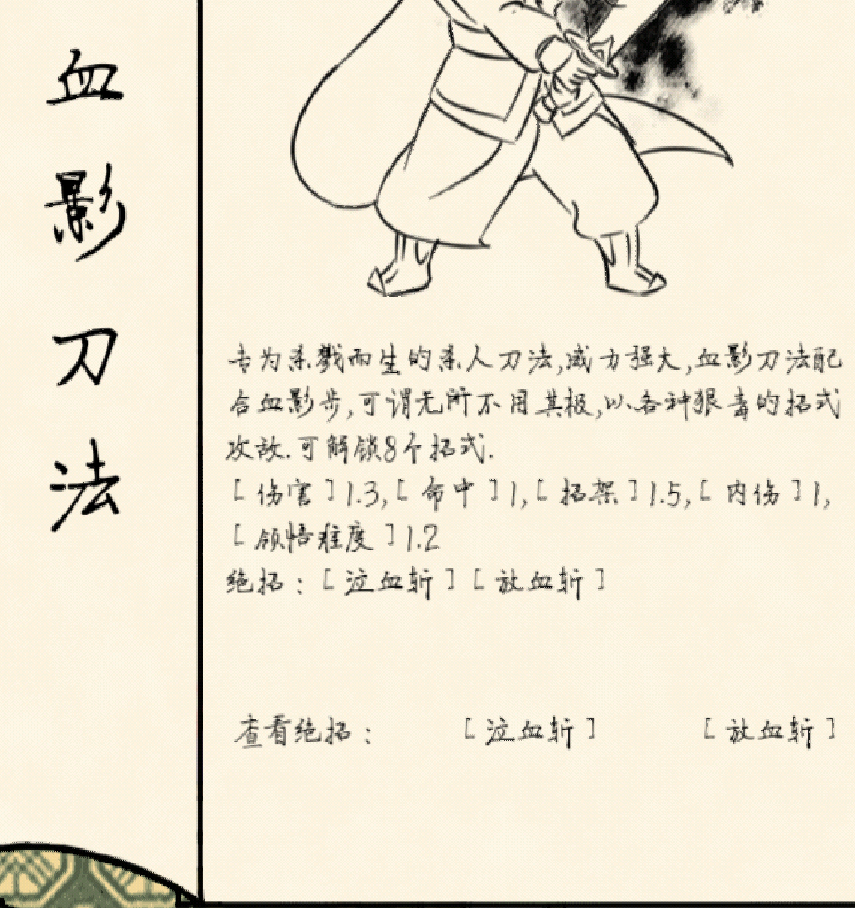 血影刀法
专为杀戮而生的杀人刀法,威力强大,血影刀法配
合血影步,可谓无所不用其极,以各种狠毒的招式
攻敌.可解锁8个招式.
[伤害]1.3,[命中]1,[招架]1.5,[内伤]1,
[领悟难度]1.2
绝招:[泣血斩][放血斩]
查看绝招: [泣血斩] [放血斩]